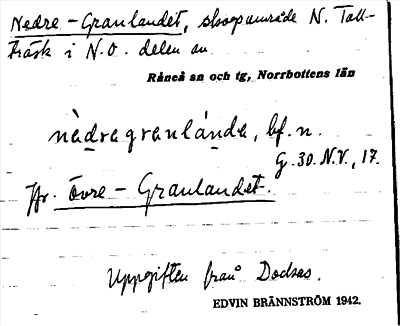 Nedre-Granlandet, skogsområde N. Tall-
träsk i N.O. delen av
Råneå sn och tg, Norrbottens län
nèdragranlánda, bf. n.
G. 30. N.V., 17.
Jfr. Övre-Granlandet.
Uppgiften från Dockas.
EDVIN BRÄNNSTRÖM 1942.